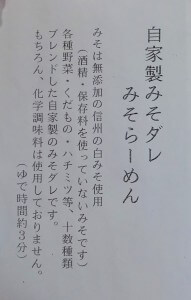 自家製みそダレ
みそらーめん
みそは無添加の信州の白みそ使用
(酒精・保存料を使っていないみそです)
各種野菜・くだもの・ハチミツ等、十数種類
ブレンドした自家製のみそダレです。
もちろん、化学調味料は使用しておりません。
(ゆで時間約3分)